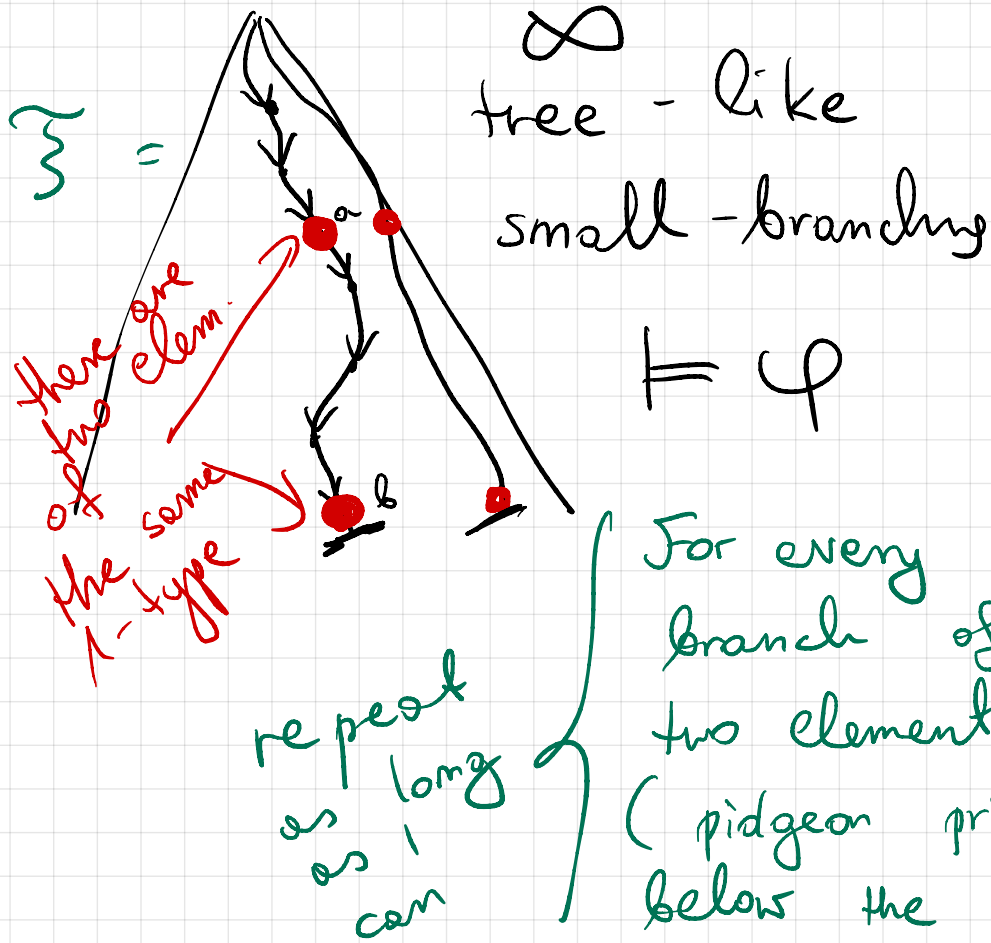 ∞
tree - like
small - branching
⊨ φ
=
a
b
there are
two elem.
of the same
1-type
repeat
as long
as I
can
For every
branch of
two element
( pidgeon pr
below the